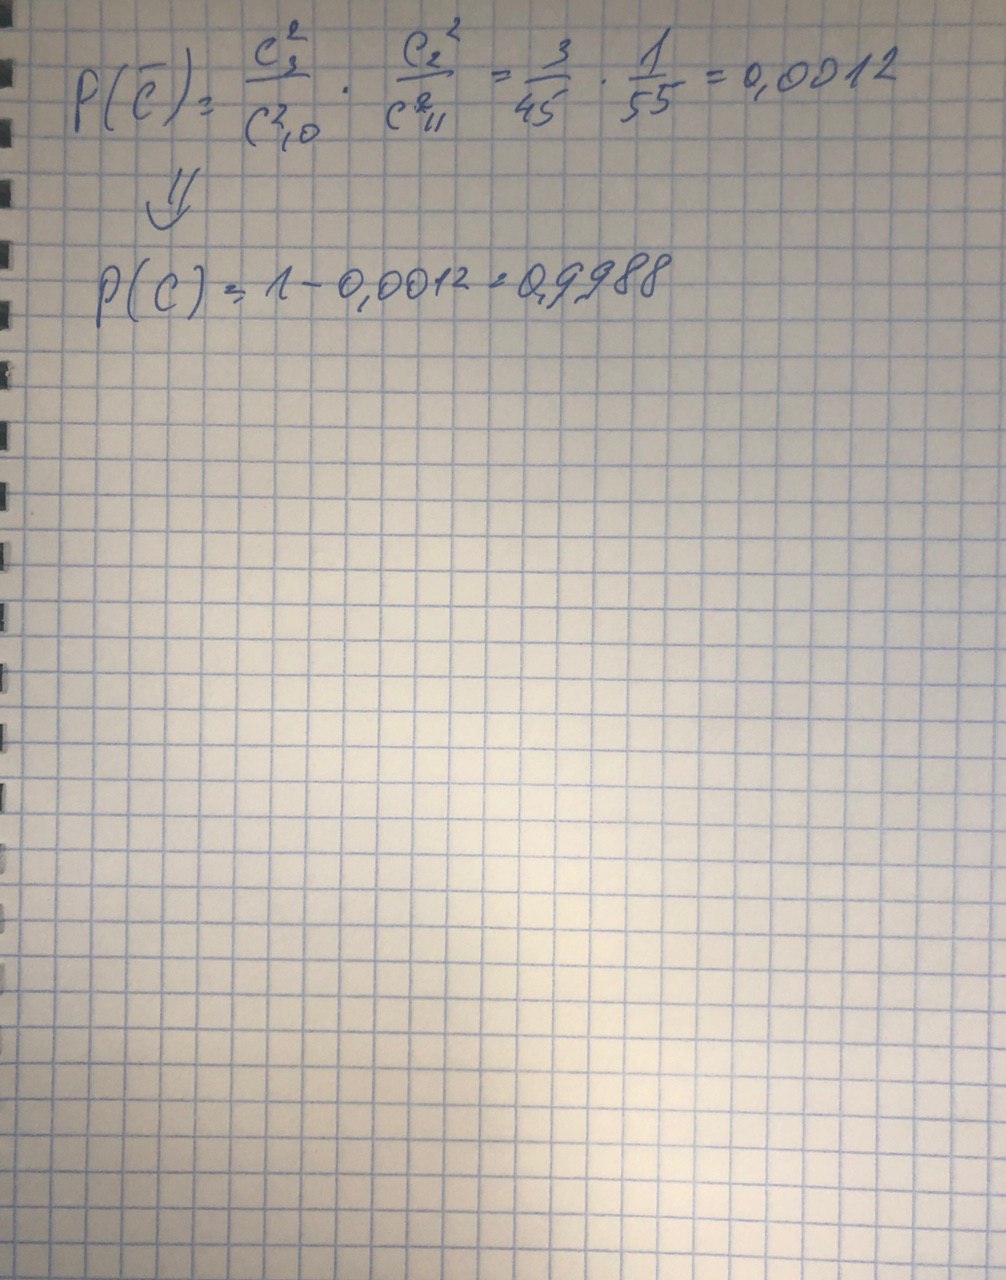 P(C̄) = C²₃/C²₁₀ · C₂²/C²₁₁ = 3/45 · 1/55 = 0,0012
⇓
P(C) = 1 - 0,0012 = 0,9988